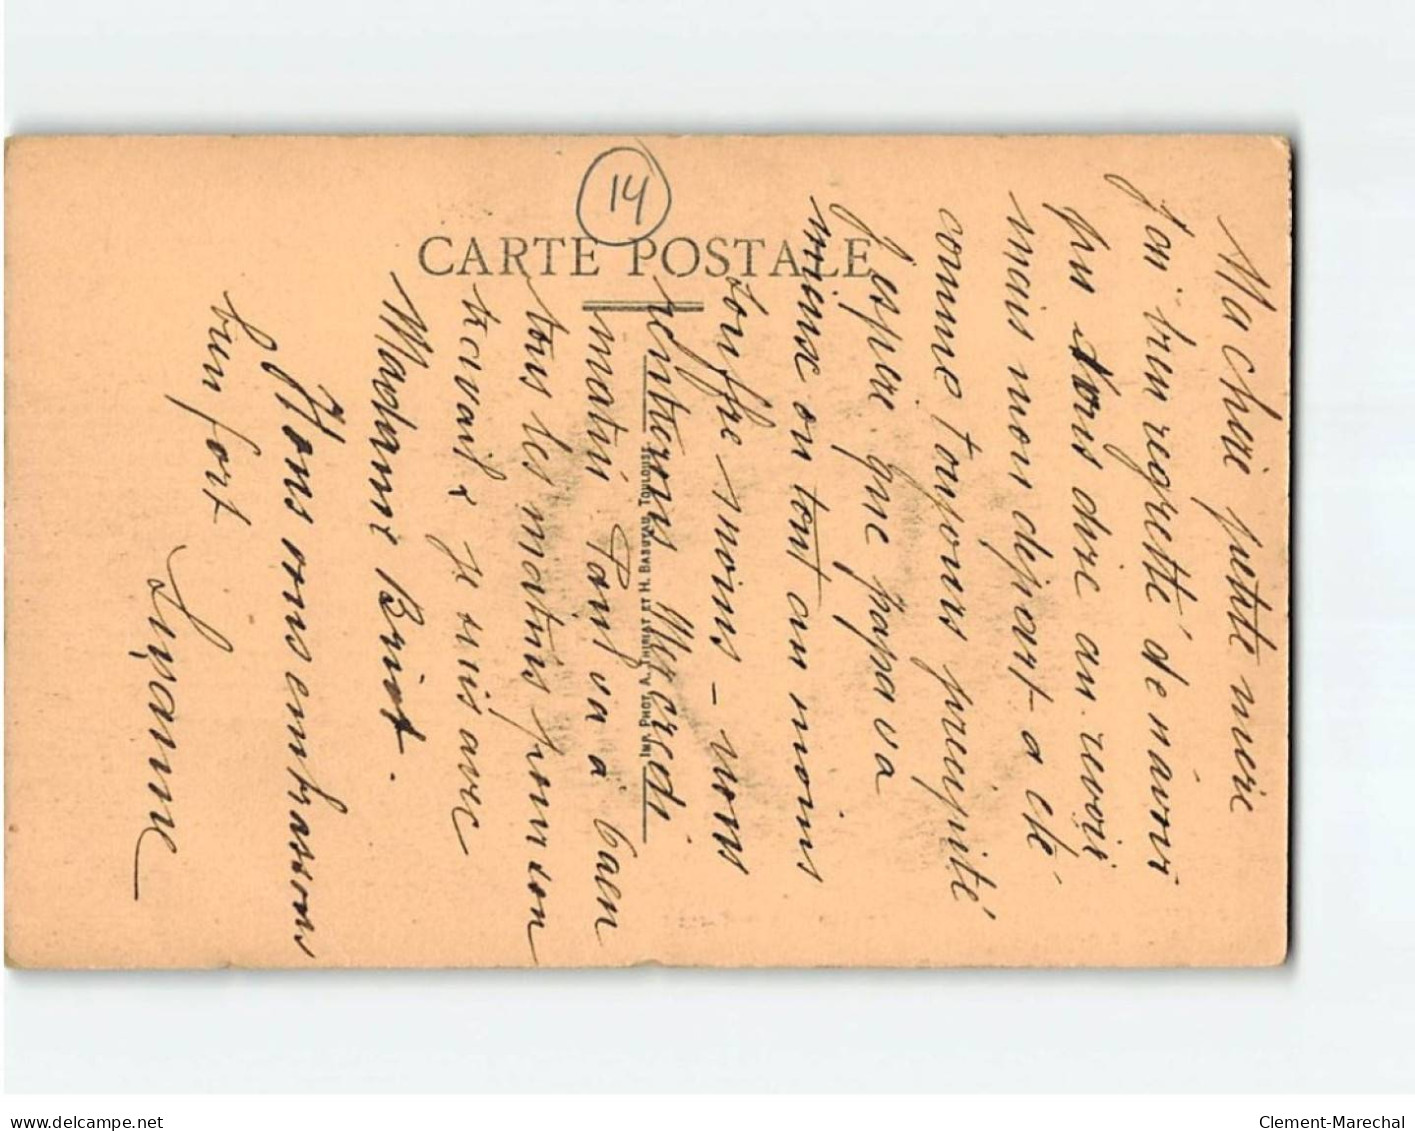 14
CARTE POSTALE
Imp. Phot. A. Thiriat et H. Basuyau, Toulouse
Ma cheri petite mere
J'ai bien regretté de n'avoir
pu vous dire au revoir
mais mon départ a eté
comme toujours precipité
J'espere que papa va
mieux ou tout au moins
souffre moins - nous
rentrerons Mercredi
matin Paris va a Caen
tous les matins pour son
travail & je suis avec
Madame Briot.
Nous vous embrassons
bien fort
Suzanne
www.delcampe.net
Clement-Marechal